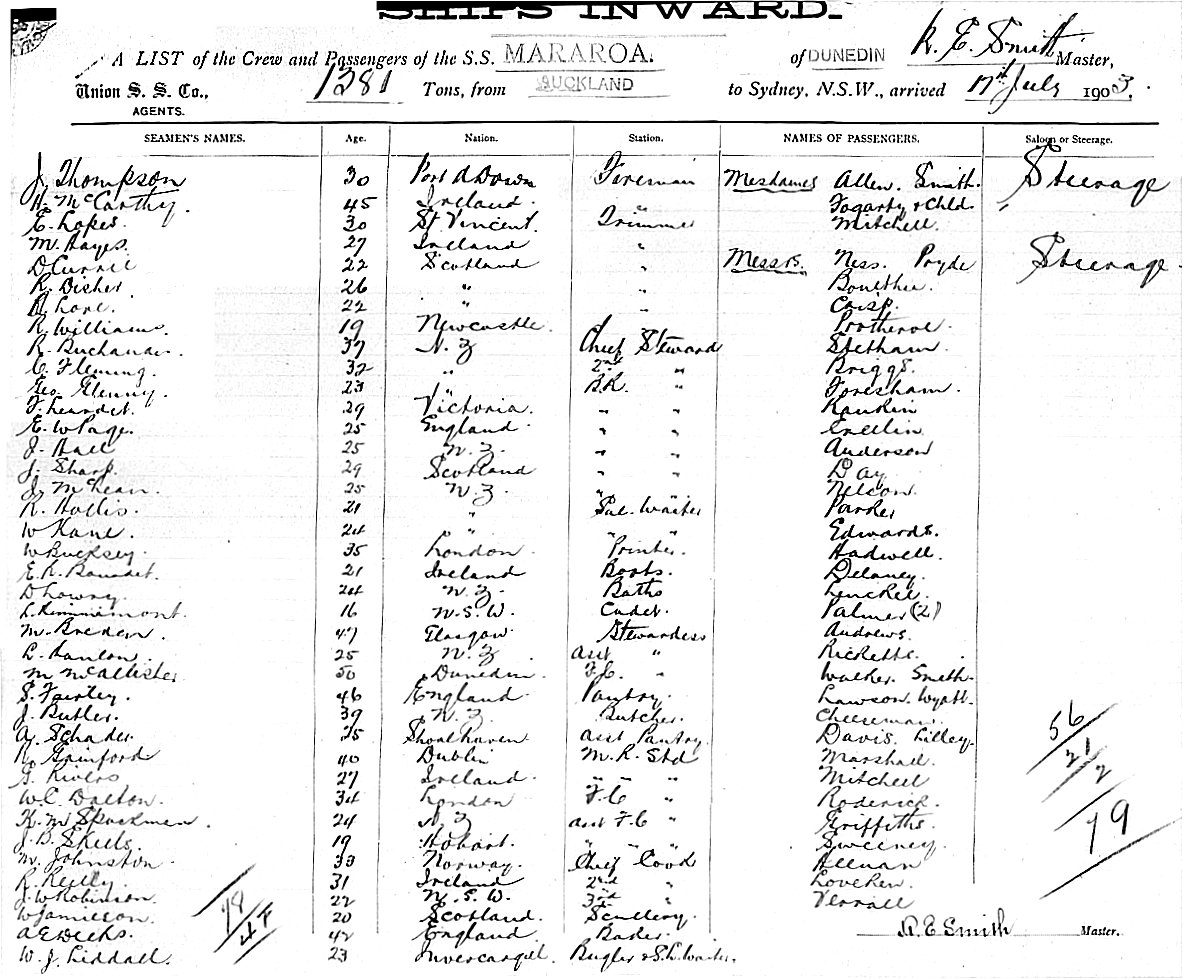 SHIPS INWARD.
A LIST of the Crew and Passengers of the S.S. MARAROA. of DUNEDIN R. E. Smith Master,
Union S. S. Co., 1381 Tons, from AUCKLAND to Sydney, N.S.W., arrived 17th July 1903.
AGENTS.
SEAMEN'S NAMES. Age. Nation. Station. NAMES OF PASSENGERS. Saloon or Steerage.
J. Thompson 30 Port A Down Fireman Mesdames Allen. Smith. Steerage
H. McCarthy. 45 Ireland. " Fogarty & Chld. "
E. Lopes. 30 St Vincent. Trimmer Mitchell.
M. Hayes. 27 Ireland "
D Currie 22 Scotland " Messrs. Ness. Pryde Steerage.
R. Disher 26 " "
22 " " Crisp.
R. Williams. 19 Newcastle. Protheroe.
R. Buchanan. 37 N. Z Chief Steward Stetham.
C. Fleming. 32 " 2nd " Briggs.
Geo. Glenny. 23 " B.R. " Foresham.
29 Victoria. " " Rankin
E. W Page. 25 England " "
J. Hall 25 N. Z. " " Anderson
J. Sharp. 29 Scotland " " Day
J. McLean. 25 N. Z. " " Nelson.
R. Hollis. 21 " Sal. Waiter Parker
W Kane. 24 " " " Edwards.
W Bucksey. 35 London. " Printer. Hadwell.
21 Ireland Boots. Delaney.
D Lowry. 24 N. Z. Baths
16 N. S. W. Cadet. Palmer (2)
M. Breden. 47 Glasgow. Stewardess Andrews.
L. Hanlon. 25 N. Z asst " Ricketts.
M McAllister 50 Dunedin F.C. " Walker. Smith.
S. Fairley. 46 England Pantry. Lawson. Wyatt.
J. Butler. 39 N. Z. Butcher. Cheeseman.
A. Schader. 25 Shoalhaven asst Pantry. Davis. Lilley. 56
R. Gainford 40 Dublin M. R. Std Marshall. 21
G. Rivers 27 Ireland " " " Mitchell 2
W. C. Dalton. 34 London F.C " Roderick. 79
K. M Spackman. 24 N. Z asst F.C " Griffiths.
J. D. Skeels. 19 Hobart. " " " Sweeney.
M. Johnston. 33 Norway. Chief Cook Heenan
R. Reilly. 31 Ireland 2nd " Loveren.
J. W Robinson. 22 N. S. W. 3rd " Verrall
W Jamieson. 78 20 Scotland. Scullery.
A E Weeks. 4 F 42 England Baker. R. E Smith Master.
W. J. Liddall. 23 Invercargill. Bugler & S.L. Waiter.